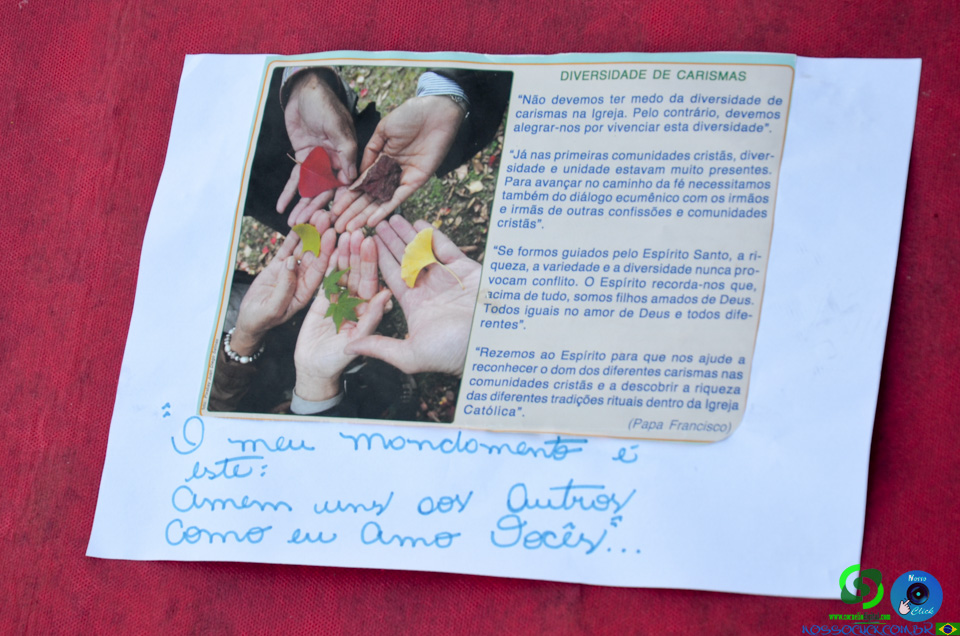 DIVERSIDADE DE CARISMAS
"Não devemos ter medo da diversidade de
carismas na Igreja. Pelo contrário, devemos
alegrar-nos por vivenciar esta diversidade".
"Já nas primeiras comunidades cristãs, diver-
sidade e unidade estavam muito presentes.
Para avançar no caminho da fé necessitamos
também do diálogo ecumênico com os irmãos
e irmãs de outras confissões e comunidades
cristãs".
"Se formos guiados pelo Espírito Santo, a ri-
queza, a variedade e a diversidade nunca pro-
vocam conflito. O Espírito recorda-nos que,
acima de tudo, somos filhos amados de Deus.
Todos iguais no amor de Deus e todos dife-
rentes".
"Rezemos ao Espírito para que nos ajude a
reconhecer o dom dos diferentes carismas nas
comunidades cristãs e a descobrir a riqueza
das diferentes tradições rituais dentro da Igreja
Católica".
(Papa Francisco)
"O meu mandamento é
este:
Amem uns aos outros
como eu amo vocês"...
Nosso
Click
NOSSOCLICK.COM.BR